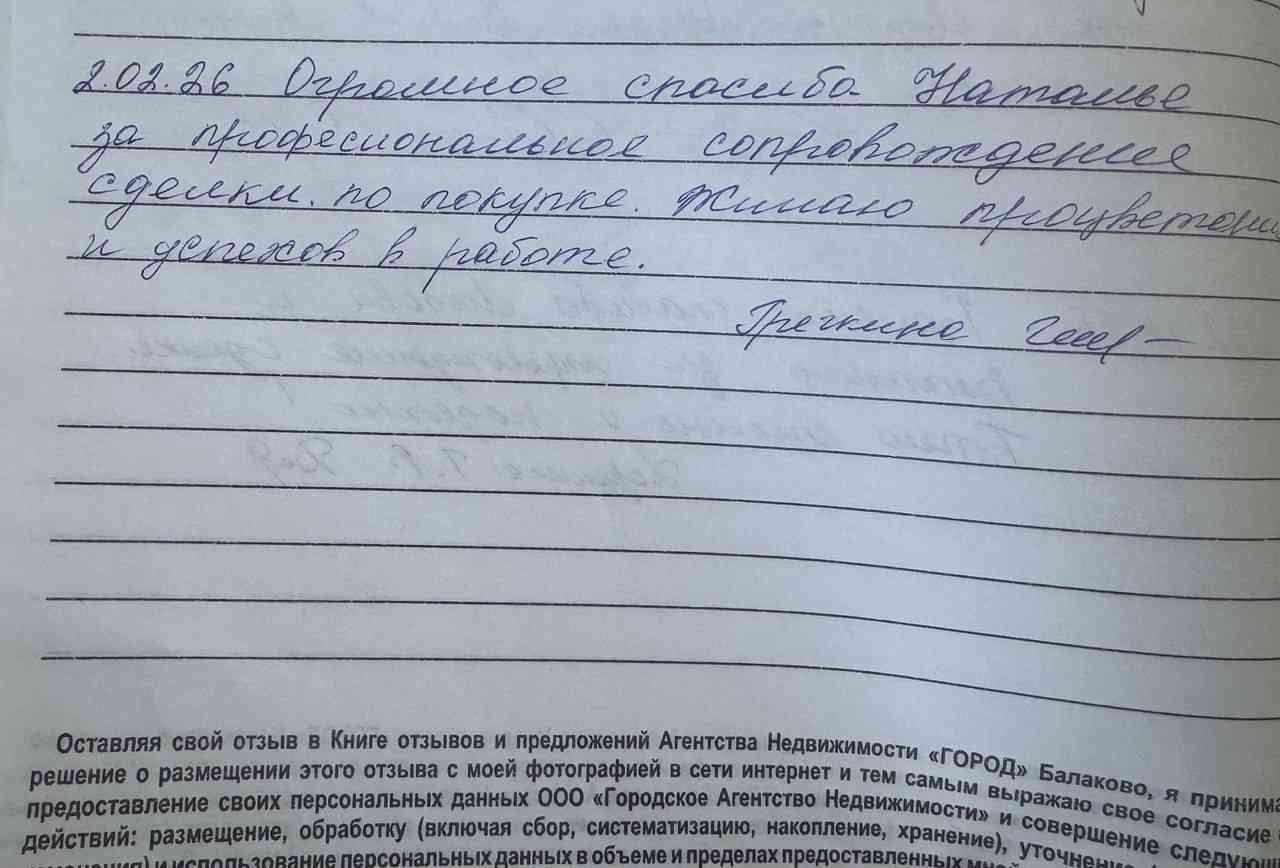 2.02.26 Огромное спасиба Наталье
за професиональное сопровождение
сделки. по покупке. Жилаю процветани
и успехов в работе.
Гречкина
Оставляя свой отзыв в Книге отзывов и предложений Агентства Недвижимости «ГОРОД» Балаково, я принима
решение о размещении этого отзыва с моей фотографией в сети интернет и тем самым выражаю свое согласие
предоставление своих персональных данных ООО «Городское Агентство Недвижимости» и совершение следую
действий: размещение, обработку (включая сбор, систематизацию, накопление, хранение), уточнение
и использование персональных данных в объеме и пределах предоставленных мной